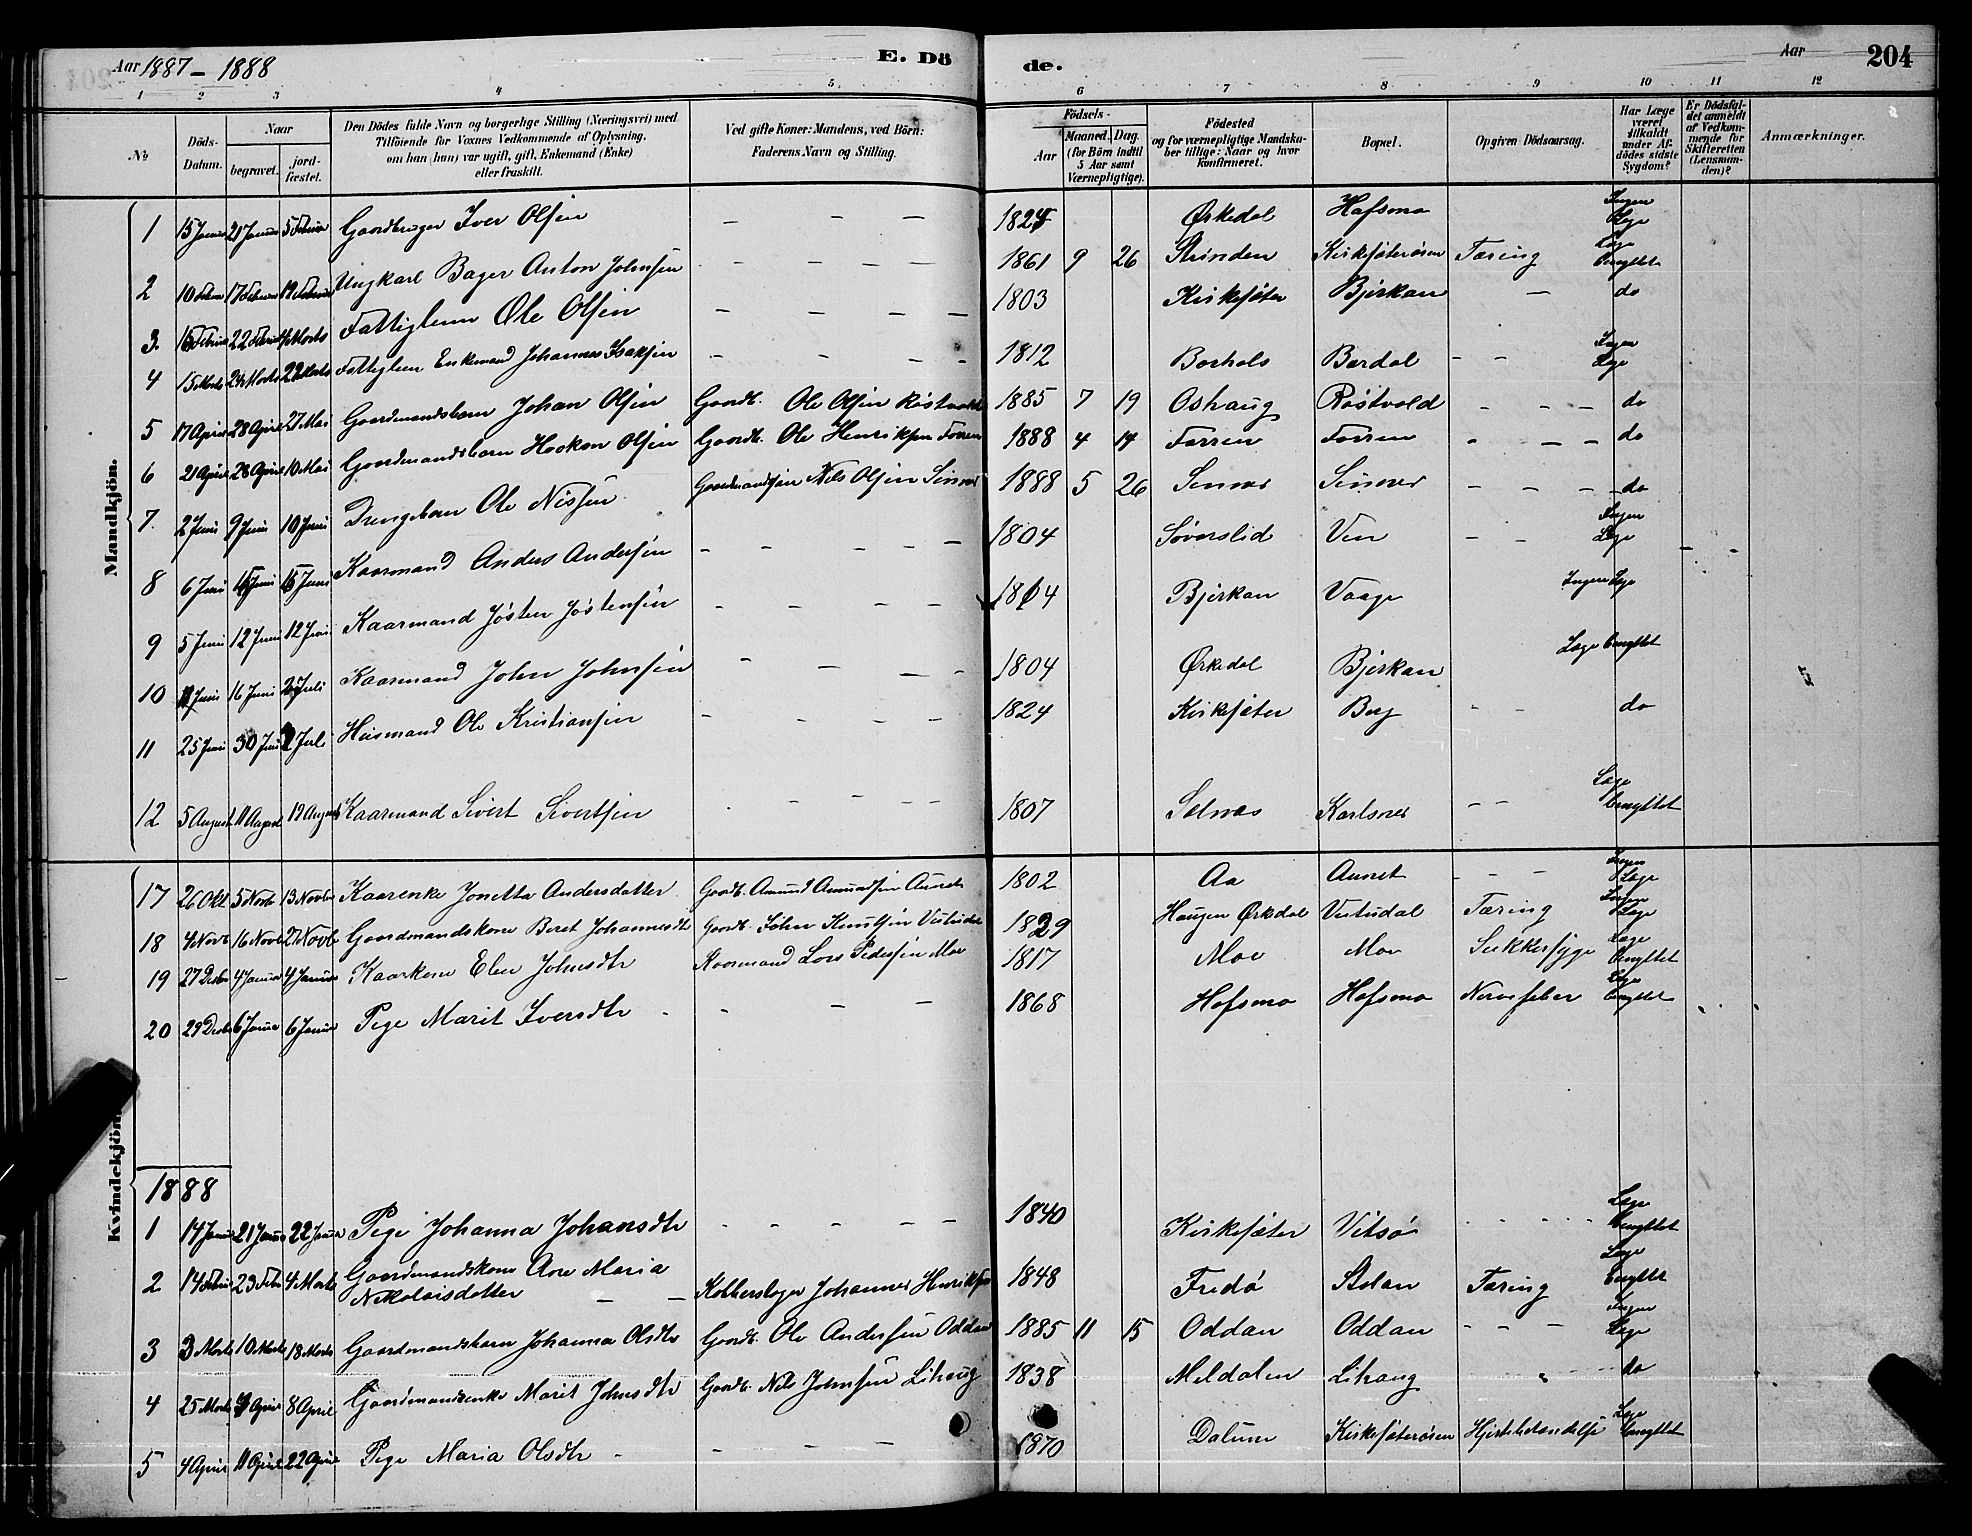 Aar 1887 - 1888 E. Dö de. Aar 204
1 2 3 4 5 6 7 8 9 10 11 12
No Döds-Datum. Naar begravet. jordfæstet. Den Dödes fulde Navn og borgerlige Stilling (Næringsvei) med Tilföiende for Voxnes Vedkommende af Oplysning, om han (hun) var ugift, gift, Enkemand (Enke) eller fraskilt. Ved gifte Koner: Mandens, ved Börn: Faderens Navn og Stilling. Födsels- Aar Maaned. Dag. (for Börn indtil 5 Aar samt Værnepligtige). Födested og for værnepligtige Mandskaber tillige: Naar og hvor konfirmeret. Bopæl. Opgiven Dödsaarsag. Har Læge været tilkaldt under Afdödes sidste Sygdom? Er Dödsfaldet anmeldt af Vedkommende for Skifteretten (Lensmanden)? Anmærkninger.
Mandkjön.
1 15 Januar 21 Januar 5 Februar Gaardbruger Iver Olsen — — — Ørkedal Hafsmo Ingen Læge
2 10 Febru 17 Februar 19 Februar Ungkarl Bager Anton Johnsen - — — — 1861 9 26 Strinden Kirkesæterøren Tæring Læge benyttet
3. 16 Februar 22 Februar Marts Fattiglem Ole Olsen — — — — 1803 Kirkesæter Bjerkan — do
4 15 Marts 24 Marts 22 Marts Fattiglem Enkemand Johannes Isaksen - - - - 1812 Borhols Bardal — - Ingen Læge
5 17 April 28 April 27 Mai Gaardmandsbarn Johan Olsen Gaardb. Ole Olsen Røstvold 1885 7 19 Oshaug Røstvold - - - do
6 21 April 28 April 10 Mai Gaardmandsbarn Haakon Olsen Gaardb. Ole Henriksen Forren 1888 4 14 Forren Forren - - - do
7. 2 Juni 9 Juni 10 Juni Drengebarn Ole Nilsen Gaardmandsøn Nils Olsen Sinnes 1888 5 26 Sinnes Sinnes - - - do
8 6 Juni 15 Juni Kaarmand Anders Andersen - - - - 1804 Søverslid Ven - - Ingen Læge
9 5 Juni 12 Juni 12 Juni Kaarmand Jøsten Jøstensen - - - - 1814 Bjerkan Vaage Ingen Læge
10 Juni 16 Juni Juli Kaarmand John Johnsen - - - - 1804 Ørkedal Bjerkan Læge benyttet
11 25 Juni 30 Juni Juli Husmand Ole Kristiansen - - - - 1824 Kirkesæter Berg - - do
12 5 August 11 August 19 August Kaarmand Sivert Sivertsen - - - - 1807 Selnæs Karlsnes - - Læge benyttet
Kvindekjön.
17 26 Okt 5 Novb 13 Novbr Kaarenke Jonetta Andersdatter Gaardb. Amund Amundsen Aunet 1802 Aa Aunet - - - Ingen Læge
18 4 Novb 16 Novb 27 Novb Gaardmandskone Beret Johannesdtr Gaardb. John Knutsen Vestudal 1829 Haugen Ørkedal Vestudal Tæring Ingen Læge
19 27 Decbr 4 Januar 4 Januar Kaarkone Elen Johnsdtr Kaarmand Lars Pedersen Moe 1817 Moe Moe Sukkersyge Læge benyttet
20 29 Decbr 6 Januar 6 Januar Pige Marit Iversdtr - - - 1868 Hafsmo Hafsmo Nervefeber Læge benyttet
1888
1 14 Januar 21 Januar 22 Januar Pige Johanna Johansdtr - - - - - 1840 Kirkesæter Vitsø - - - - Læge benyttet
2 14 Februar 23 Feb 4 Marts Gaardmandskone Ane Maria
Nikolaisdatter — — Kobberslager Johannes Henriksen 1848 Fredø Stolan Tæring Læge benyttet
3 3 Marts 10 Marts 18 Marts Gaardmandsbarn Johanna Olsdtr Gaardb. Ole Andersen Oddan 1885 11 15 Oddan Oddan - - - Ingen Læge
4 25 Marts April 8 April Gaardmandsenke Marit Johnsdtr Gaardb. Nils Johnsen Lihaug 1838 Meldalen Lihaug " do
5 4 April 11 April 22 April Pige Maria Olsdtr - - - - 1870 Dalum Kirkesæterøren Hjertebetændelse Læge benyttet